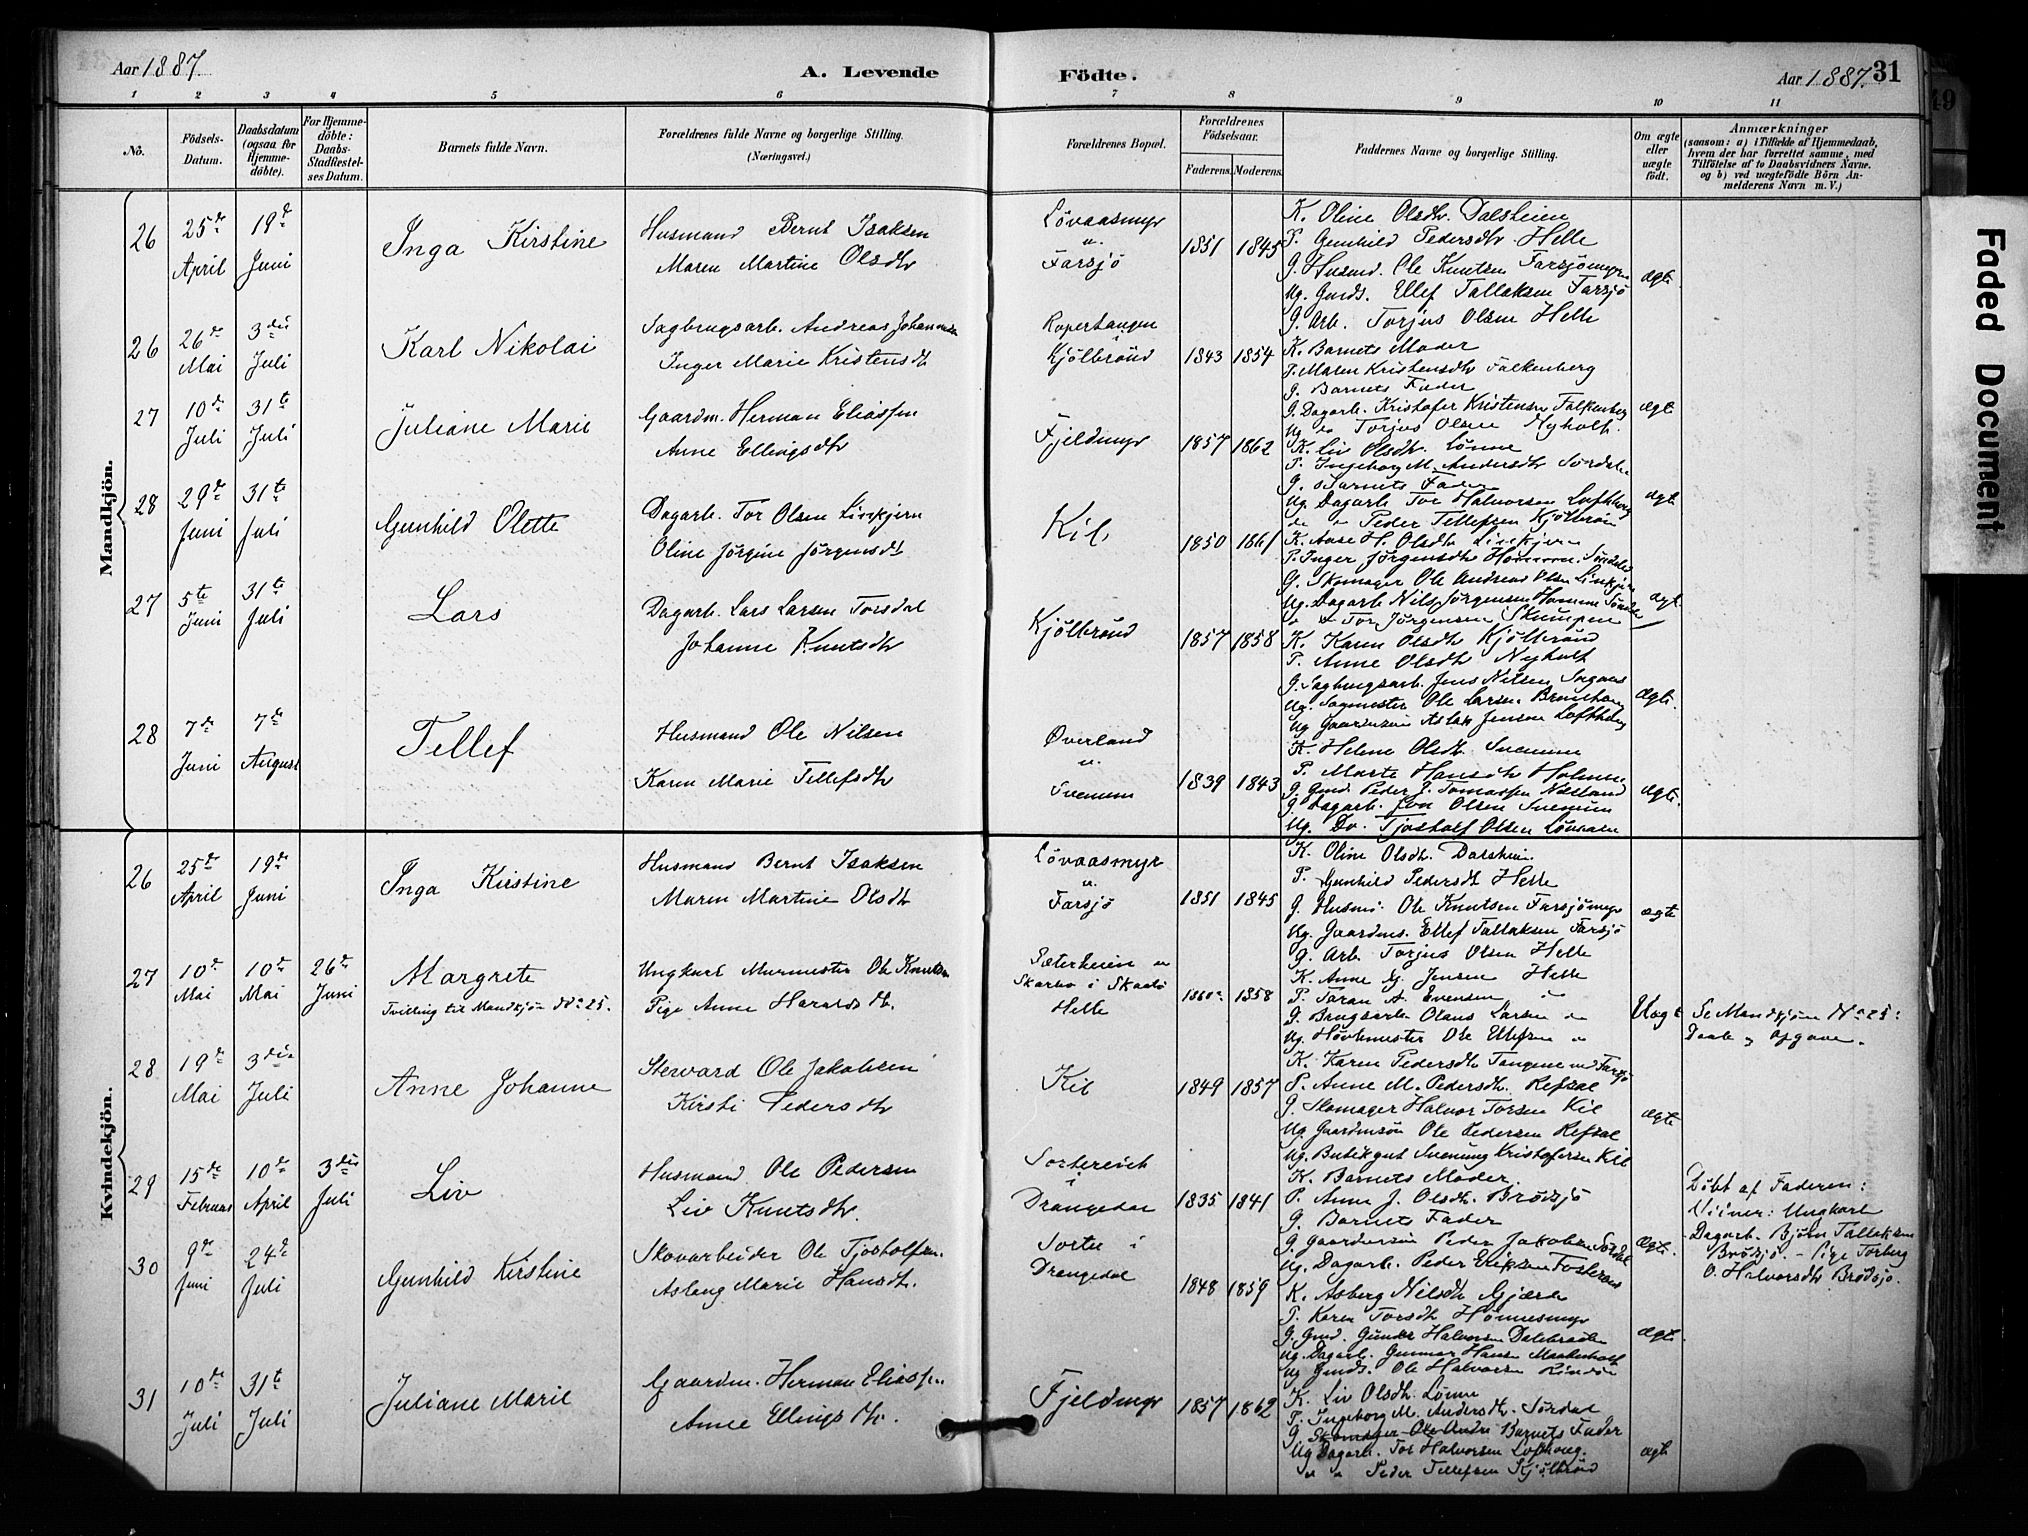 Aar 1887.
A. Levende
Födte.
Aar 1887.
31
49
1 2 3 4 5 6 7 8 9 10 11
No.
Födsels-
Datum.
Daabsdatum
(ogsaa for
Hjemme-
döbte).
For Hjemme-
döbte:
Daabs-
Stadfæstel-
ses Datum.
Barnets fulde Navn.
Forældrenes fulde Navne og borgerlige Stilling.
(Næringsvei.)
Forældrenes Bopæl.
Forældrenes
Födselsaar.
Faderens. Moderens.
Faddernes Navne og borgerlige Stilling.
Om ægte
eller
uægte
födt.
Anmærkninger
(saasom: a) i Tilfælde af Hjemmedaab,
hvem der har forrettet samme, med
Tilföielse af to Daabsvidners Navne.
og b) ved uægtefödte Börn An-
melderens Navn m. V.)
Faded Document
Mandkjön.
26 25de April 19de Juni
Inga Kirstine
Husmand Bernt Isaksen
Maren Martine Olsdtr
Lövaasmyr
u.
Farsjö
1851 1845
K. Oline Olsdtr. Dalsheien
P. Gunhild Pedersdtr Helle
G. Husmd. Ole Knutsen Farsjömyr
Ug. Gmds. Ellef Tallaksen Farsjö
G. Arb. Torjus Olsen Helle
ægte
26 26de Mai 3die Juli
Karl Nikolai
Sagbrugsarb. Andreas Johannesen
Inger Marie Kristensdtr
Ropertangen
Kjölbrönd
1843 1854
K. Barnets Moder
P. Maren Kristensdtr Falkenberg
G. Barnets Fader
G. Dagarb. Kristofer Kristensen Falkenberg
Ug do Torjus Olsen Nyholt.
ægt
27 10de Juli 31te Juli
Juliane Marie
Gaardm. Herman Eliassen
Anne Ellingsdtr
Fjeldmyr
1857 1862
K. Liv Olsdtr. Lönne
P. Ingeborg M. Andersdtr Sördal
G. Barnets Fader
Ug. Dagarb Tor Halvorsen Lofthaug
do " Peder Tellefsen Kjölbrön
ægt
28 29de Juni 31te Juli
Gunhild Olette
Dagarb. Tor Olsen Livskjern
Oline Jörgine Jörgensdt
Kil
1850 1861
K. Anse H. Olsdtr
P. Inger Jörgensdtr
G. Skomager Ole Andreas Olsen
Ug. Dagarb Nils Jörgensen
" " Tor Jörgensen Skumpen
ægt.
27 5te Juni 31te Juli
Lars
Dagarb. Lars Larsen Torsdal
Johanne Knutsdtr
Kjölbrönd
1857 1858
K. Karen Olsdtr Kjölbrönd
P. Anne Olsdtr Nyholt
G. Sagbrugsarb. Jens Nilsen
Ug. Sagmester Ole Larsen
Ug Gaardmsön Aslak Jensen Lofthaug
Ægte.
28 7de Juni 7de August
Tellef
Husmand Ole Nilsen
Karen Marie Tellefsdtr
Överland
u.
Svenum
1839 1843
K. Helene Olsdtr. Svenum
P. Marte Hansdtr Holmen
G. Gmd. Peder J. Tomassen Næsland
G. Dagarb. Olsen Svenum
Ug. Do. Tjostolf Olsen Lövaasen
ægte.
Kvindekjön.
26 25de April 19de Juni
Inga Kirstine
Husmand Bernt Isaksen
Maren Martine Olsdtr
Lövaasmyr
u.
Farsjö
1851 1845
K. Oline Olsdtr. Dalsheien.
P. Gunhild Pedersdt Helle
G. Husmd. Ole Knutsen Farsjömyr
Ug. Gaardms. Ellef Tallaksen Farsjö
G. Arb. Torjus Olsen Helle
ægte
27 10de Mai 10de Mai 26de Juni
Margrete
Tvilling til Mandkjön No 25.
Ungkarl Murmester Ole Knutsen
Pige Anne Haraldsdtr.
Sæterheien u
Skarbo i Skaatö
Helle
1860 1858
K. Anne Jensen Helle
P. Taran A. Evensen "
G. Brugsarb. Olaus Larsen "
Ug. Hövlmester Ole Ellefsen "
Uægte
Se Mandkjön No 25:
Daab & Opgave.
28 19de Mai 3die Juli
Anne Johanne
Steward Ole Jakobsen
Kirsti Pedersdtr
Kil
1849 1857
K. Karen Pedersdtr Tangene ved Farsjö
P. Anne M. Pedersdtr. Refsal
G. Skomager Halvor Torsen Kil
Ug. Gaardmsön Ole Pedersen Refsal
Ug. Butikgut Svenung Kristofersen Kil
ægte
29 15de Februar 10de April 3die Juli
Liv
Husmand Ole Pedersen
Liv Knutsdtr.
i
Drangedal
1835 1841
K. Barnets Moder.
P. Anne J. Olsdtr. Brödsjö
G. Barnets Fader
G. Gaardmsön Peder Jakobsen
Ug. Dagarb. Peder Eriksen
Ægte.
Döbt af Faderen:
Vidner: Ungkarl
Dagarb. Björn Tallaksen
Brödsjö. – Pige Torberg
O. Halvorsdtr Brödsjö.
30 9de Juni 24de Juli
Gunhild Kirstine
Skovarbeider Ole Tjostolfsen.
Aslaug Marie Hansdt.
i
Drangedal
1848 1859
K. Asberg Nilsdtr Gjærde
P. Karen Torsdtr
G. Gmd. Gunder Halvorsen
Ug. Dagarb. Gunnar Hansen
Ug Gmds. Ole Halvorsen
ægte
31 10de Juli 31te Juli
Juliane Marie
Gaardm. Herman Eliassen
Anne Ellingsdtr.
Fjeldmyr
1857 1862
K. Liv Olsdtr. Lönne
P. Ingeborg M. Andersdtr. Sördal
G Skomager Ole Andr Barnets Fader
Ug Dagarb. Tor Halvorsen Lofthaug.
" " Peder Tellefsen Kjölbrönd
ægte